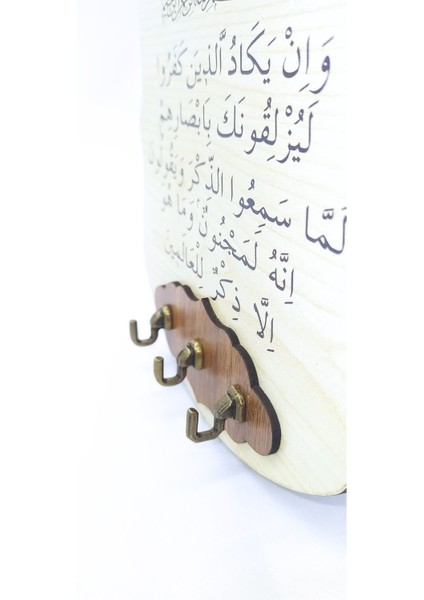 وَاِنْ يَكَادُ الَّذٖينَ كَفَرُوا
لَيُزْلِقُونَكَ بِاَبْصَارِهِمْ
لَمَّا سَمِعُوا الذِّكْرَ وَيَقُولُونَ
اِنَّهُ لَمَجْنُونٌ وَمَا هُوَ
اِلَّا ذِكْرٌ لِلْعَالَمٖينَ